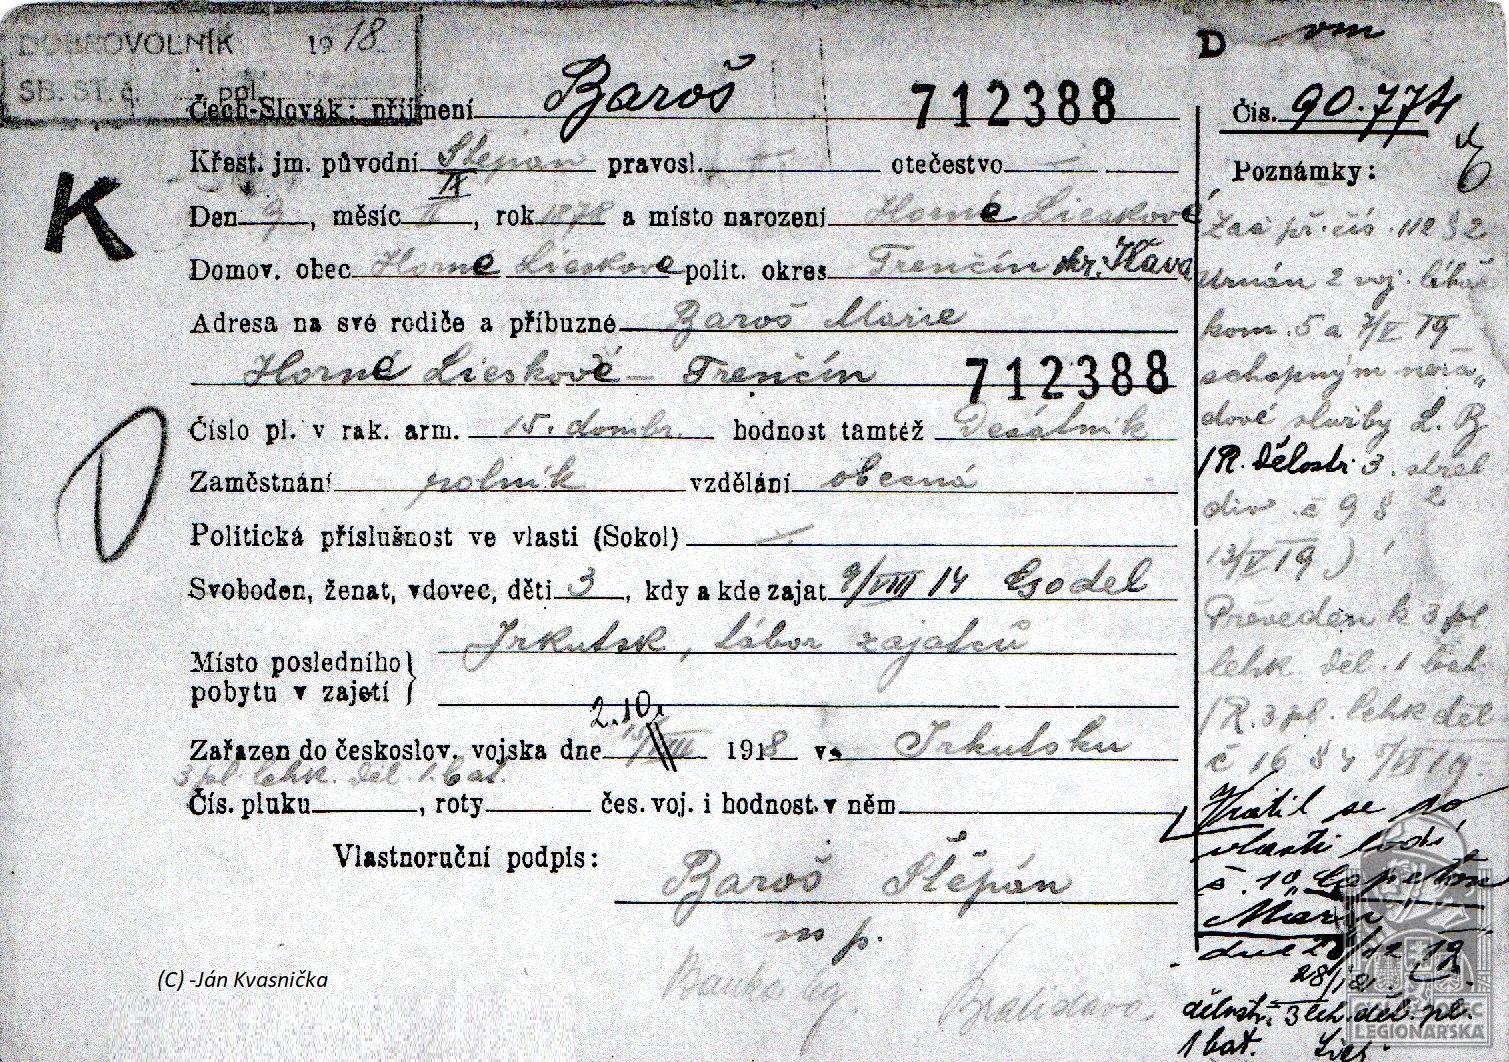 DOBROVOLNÍK 1918
SB. ST. č. ppl.
D vm
Čech-Slovák: příjmení Baroš 712388
Čís. 90.774
K
Křest. jm. původní Štěpán pravosl. — otečestvo —
Poznámky:
IX
Den 9, měsíc II, rok 1878 a místo narození Horné Lieskové
Domov. obec Horné Lieskové polit. okres Trenčín okr. Ilava
Adresa na své rodiče a příbuzné Baroš Marie
Horné Lieskové – Trenčín 712388
D
Číslo pl. v rak. arm. 15. dombr. hodnost tamtéž Desátník
Zaměstnání rolník vzdělání obecná
Politická příslušnost ve vlasti (Sokol) —
Svoboden, ženat, vdovec, děti 3, kdy a kde zajat 9/VIII 14 Godel
Místo posledního pobytu v zajetí } Irkutsk, tábor zajatců
2.10.
Zařazen do českoslov. vojska dne VIII 1918 v Irkutsku
3 pl. lehk. děl. 1. bat.
Čís. pluku, roty čes. voj. i hodnost v něm
Vlastnoruční podpis:
Baroš Štěpán
m p.
Banka leg. Bratislava
př. čís. 112 § 2
Uznán 2 voj. lékař
kom. 5 a 7/V 19
schopným neřa-
dové služby L. B
/R. Dělostr. 3. střel
div. č 9 § 2
13/V 19)
Převeden k 3 pl
lehk. děl. 1 bat.
/R. 3 pl. lehk děl
č 16 § 4 7/VI 19.
Vrátil se do
vlasti lodí
č. 10 „
Mary
dne 12 19
28/12
dělostř. 3 leh. děl. pl.
1 bat.
(C) -Ján Kvasnička
OBEC
LEGIONÁŘSKÁ